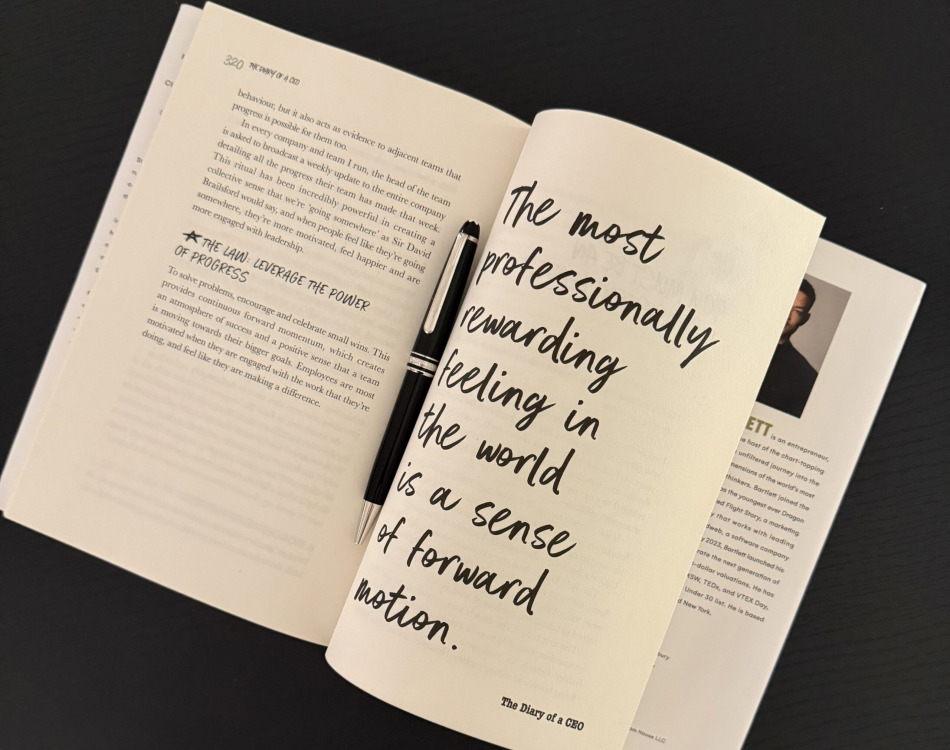 320 THE DIARY OF A CEO
behaviour, but it also acts as evidence to adjacent teams that
progress is possible for them too.
In every company and team I run, the head of the team
is asked to broadcast a weekly update to the entire company
detailing all the progress their team has made that week.
This ritual has been incredibly powerful in creating a
collective sense that we're 'going somewhere' as Sir David
Brailsford would say, and when people feel like they're going
somewhere, they're more motivated, feel happier and are
more engaged with leadership.
THE LAW: LEVERAGE THE POWER
OF PROGRESS
To solve problems, encourage and celebrate small wins. This
provides continuous forward momentum, which creates
an atmosphere of success and a positive sense that a team
is moving towards their bigger goals. Employees are most
motivated when they are engaged with the work that they're
doing, and feel like they are making a difference.
The most
professionally
rewarding
feeling in
the world
is a sense
of forward
motion.
The Diary of a CEO
ETT is an entrepreneur,
host of the chart-topping
unfiltered journey into the
mensions of the world's most
thinkers. Bartlett joined the
as the youngest ever Dragon
ed Flight Story, a marketing
that works with leading
dweb, a software company
2023, Bartlett launched his
rate the next generation of
-dollar valuations. He has
SW, TEDx, and VTEX Day,
Under 30 list. He is based
d New York.
House LLC